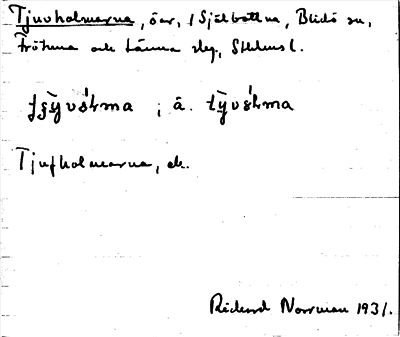 Tjuvholmarna, öar, i Själbottna, Blidö sn,
Frötuna och Länna skg, Sthlms l.
; ä.
Tjufholmarna, ek.
Rickard Norrman 1931.